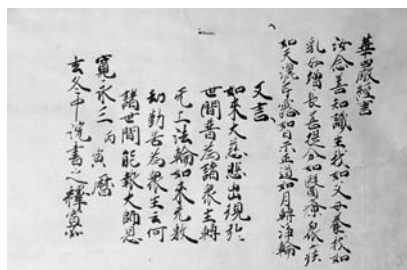 華嚴経言
汝念善知識生我如父母養我如
乳母增長菩提分如醫療衆疾
如天灑甘露如日示正道如月轉净輪
又言
如来大慈悲出現於
世間普為諸衆生轉
无上法輪如来无数
劫勤苦為衆生云何
諸世間能報大師恩
寛永三丙寅暦
玄冬中浣書之釋宣如